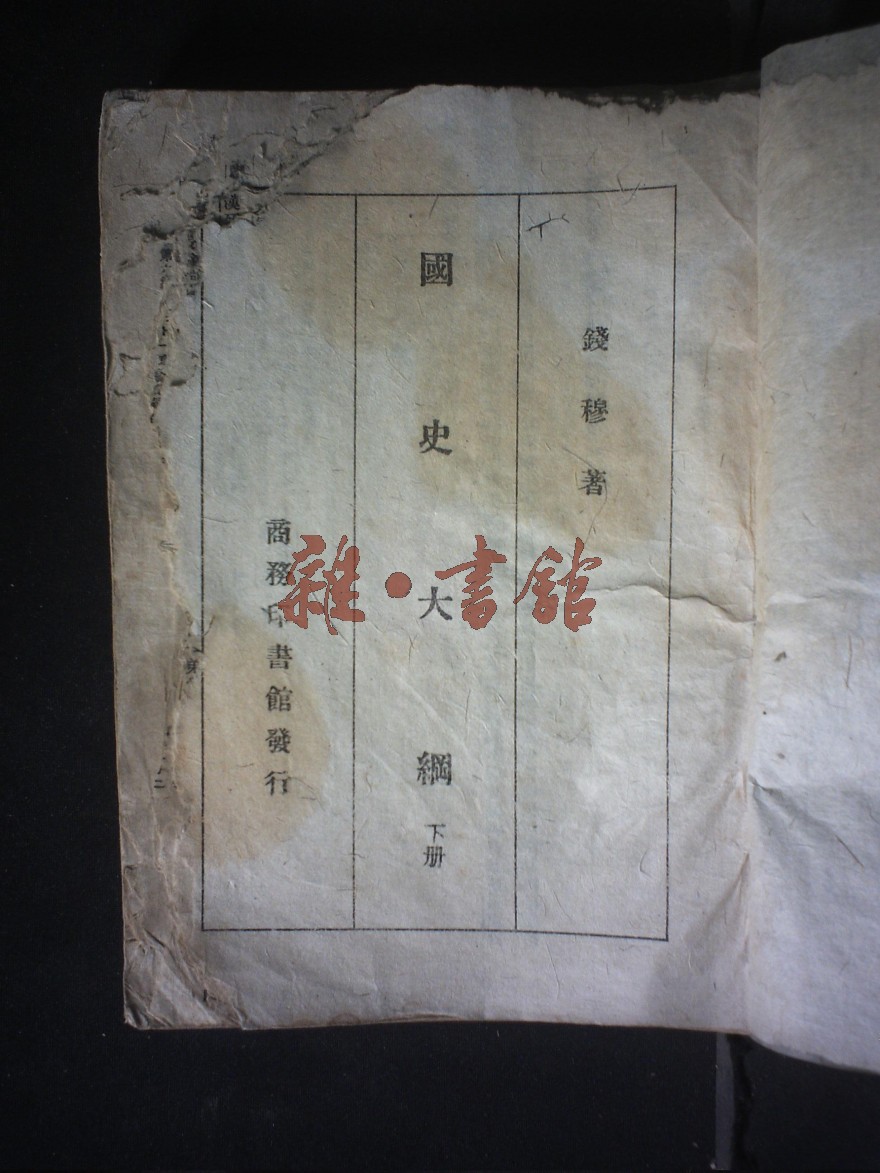 錢穆著
國史大綱 下册
商務印書館發行
雜·書館